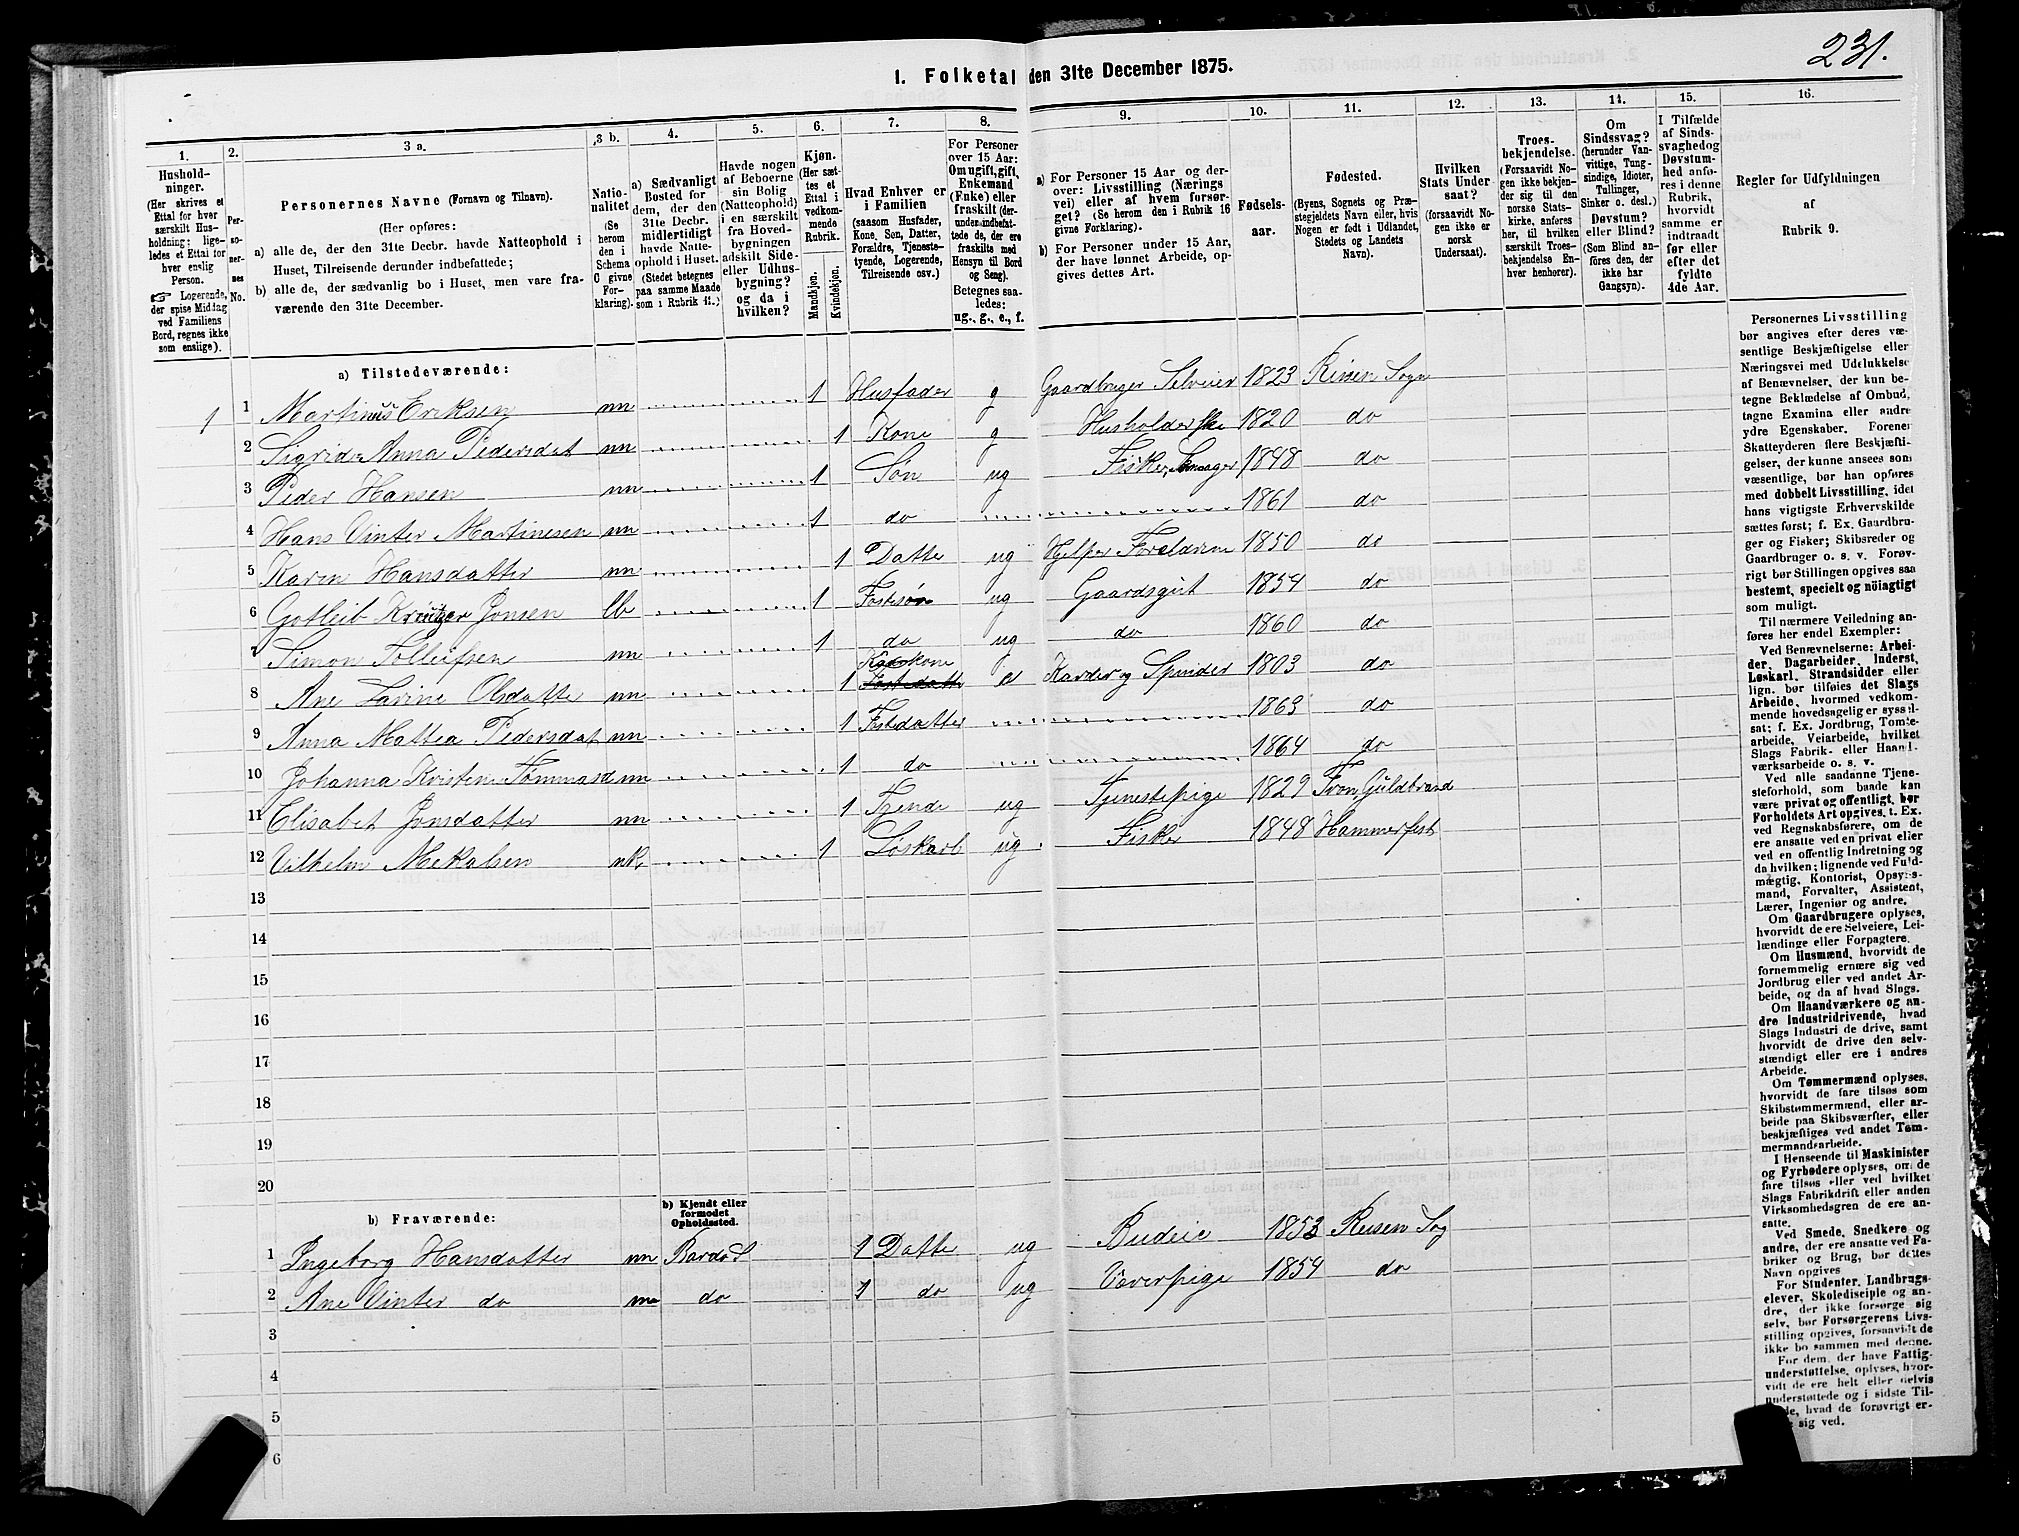 231.
1. Folketal den 31te December 1875.
1. 2. 3 a. 3 b. 4. 5. 6. 7. 8. 9. 10. 11. 12. 13. 14. 15. 16.
Hushold-
ninger.
(Her skrives et
Ettal for hver
særskilt Hus-
holdning; lige-
ledes et Ettal for
hver enslig
Person.
☞ Logerende,
der spise Middag
ved Familiens
Bord, regnes ikke
som enslige).
Per-
so-
ner-
nes
No.
Personernes Navne (Fornavn og Tilnavn).
(Her opføres:
a) alle de, der den 31te Decbr. havde Natteophold i
Huset, Tilreisende derunder indbefattede;
b) alle de, der sædvanlig bo i Huset, men vare fra-
værende den 31te December.
Natio-
nalitet
(Se
herom
den i
Schema
C givne
For-
klaring).
a) Sædvanligt
Bosted for
dem, der den
31te Decbr.
midlertidigt
havde Natte-
ophold i Huset.
(Stedet betegnes
paa samme Maade
som i Rubrik 11.)
Havde nogen
af Beboerne
sin Bolig
(Natteophold)
i en særskilt
fra Hoved-
bygningen
adskilt Side-
eller Udhus-
bygning?
og da i
hvilken?
Kjøn.
(Her sæt-
tes et
Ettal i
vedkom-
mende
Rubrik.
Mandkjøn.
Kvindekjøn.
Hvad Enhver er
i Familien
(saasom Husfader,
Kone, Søn, Datter,
Forældre, Tjeneste-
tyende, Logerende,
Tilreisende osv.)
For Personer
over 15 Aar:
Om ugift, gift,
Enkemand
(Enke) eller
fraskilt (der-
under indbefat-
tede de, der ere
fraskilte med
Hensyn til Bord
og Seng).
Betegnes saa-
ledes:
ug., g., e., f.
a) For Personer 15 Aar og der-
over: Livsstilling (Nærings
vei) eller af hvem forsør-
get? (Se herom den i Rubrik 16
givne Forklaring).
b) For Personer under 15 Aar,
der have lønnet Arbeide, op-
gives dettes Art.
Fødsels-
aar.
Fødested.
(Byens, Sognets og Præ-
stegjeldets Navn eller, hvis
Nogen er født i Udlandet,
Stedets og Landets
Navn).
Hvilken
Stats Under
saat?
(forsaavidt No-
gen ikke er
norsk
Undersaat).
Troes-
bekjendelse.
(Forsaavidt No-
gen ikke bekjen-
der sig til den
norske Stats-
kirke, anføres
her, til hvilken
særskilt Troes-
bekjendelse En-
hver henhører).
Om
Sindssvag?
(herunder Van-
vittige, Tung-
sindige, Idioter,
Tullinger,
Sinker o. desl.)
Døvstum?
eller Blind?
(Som Blind an-
føres den, der
ikke har
Gangsyn).
I Tilfælde
af Sinds-
svaghed og
Døvstum-
hed anfø-
res i denne
Rubrik,
hvorvidt
samme er
indtraadt
før eller
efter det
fyldte
4de Aar.
Regler for Udfyldningen
af
Rubrik 9.
a) Tilstedeværende:
1 1 Martinus Eriksen nn 1 Husfader g Gaardbruger Selveier 1823 Risen Sogn
2 Sigrid Anna Pedersdat nn 1 Kone g Husholderske 1820 do
3 Peder Hansen nn 1 Søn ug Fisker 1848 do
4 Hans Vinter Martinesen nn 1 do 1861 do
5 Karen Hansdatter nn 1 Datte ug Hjelper Forældrene 1850 do
6 Gotleib Jonsen lb 1 Fostesøn ug Gaardsgut 1854 do
7 Simon Tolleifsen nn 1 do ug do 1860 do
8 Ane Lavine Olsdatte nn 1 Kaarkone Karder og Spinder 1803 do
9 Anna Mattea Pedersdat nn 1 Fostedatter 1863 do
10 Johanna Kristen Tømmasd nn 1 do 1864 do
11 Elisabet Jonsdatter nn 1 Tjende ug Tjenestepige 1829 Fron, Guldbrand
12 Vilhelm Mekalsen nk 1 Løskarl ug Fisker 1848 Hammerfest
13
14
15
16
17
18
19
20
b) Fraværende:
b) Kjendt eller
formodet
Opholdssted.
1 Ingeborg Hansdatter nn Bardo 1 Datte ug Budeie 1853 Reisen Sog
2 Ane Vinter do nn do 1 do ug Væverpige 1854 do
3
4
5
6
Personernes Livsstilling
bør angives efter deres væ-
sentlige Beskjæftigelse eller
Næringsvei med Udelukkelse
af Benævnelser, der kun be-
tegne Beklædelse af Ombud,
tagne Examina eller andre
ydre Egenskaber. Forener
Skatteyderen flere Beskjæfti-
gelser, der kunne ansees som
væsentlige, bør han opføres
med dobbelt Livsstilling, idet
hans vigtigste Erhvervskilde
sættes først; f. Ex. Gaardbru-
ger og Fisker; Skibsreder og
Gaardbruger o. s. v. Forøv-
rigt bør Stillingen opgives saa
bestemt, specielt og nöiagtigt
som muligt.
Til nærmere Veiledning an-
føres her endel Exempler:
Ved Benævnelserne: Arbei-
der, Dagarbeider, Inderst,
Løskarl, Strandsidder eller
lign. bør tilføies det Slags
Arbeide, hvormed vedkom-
mende hovedsagelig er syssel-
sat; f. Ex. Jordbrug, Tomte-
arbeide, Veiarbeide, hvilket
Slags Fabrik- eller Haand-
værksarbeide o. s. v.
Ved alle saadanne Tjene-
steforhold, som baade kan
være privat og offentligt, bør
Forholdets Art opgives, t. Ex.
ved Regnskabsførere, om de
ere ansatte ved en privat eller
ved en offentlig Indretning og
da hvilken; lignende ved Fuld-
mægtig, Kontorist, Opsyns-
mand, Forvalter, Assistent,
Lærer, Ingeniør og andre.
Om Gaardbrugere oplyses,
hvorvidt de ere Selveiere, Lei-
lændinge eller Forpagtere.
Om Husmænd, hvorvidt de
fornemmelig ernære sig ved
Jordbrug eller ved andet Ar-
beide, og da af hvad Slags.
Om Haandværkere og an-
dre Industridrivende, hvad
Slags Industri de drive, samt
hvorvidt de drive den selv-
stændigt eller ere i andres
Arbeide.
Om Tømmermænd oplyses,
hvorvidt de fare tilsøs som
Skibstømmermænd, eller ar-
beide paa Skibsværfter, eller
beskjæftiges ved andet Tøm-
mermandsarbeide.
I Henseende til Maskinister
og Fyrbødere oplyses, om de
fare tilsøs eller ved hvilket
Slags Fabrikdrift eller anden
Virksomhedsgren de ere an-
satte.
Ved Smede, Snedkere og
andre, der ere ansatte ved Fa-
briker og Brug, bør dettes
Navn opgives
For Studenter, Landbrugs-
elever, Skoledisciple og an-
dre, der ikke forsørge sig
selv, bør Forsørgerens Livs-
stilling opgives, forsaavidt de
ikke bo sammen med denne.
For dem, der have Fattig-
understøttelse, oplyses, hvor-
vidt de ere helt eller delvis
understøttede og i sidste Til-
de, hvad de forøvrigt er-
sig ved.